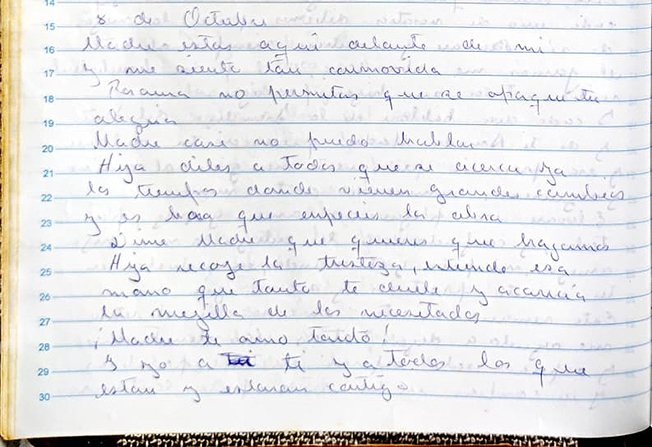 14
15 8 de Octubre
16 Madre estas aqui delante de mi
17 y me siento tan conmovida
18 no permitas que se apague tu
19 alegria
20 Madre casi no puedo hablar
21 Hija diles a todos que se acerca ya
22 los tiempos donde vienen grandes cambios
23 y es hora que empecis la obra
24 Dime Madre que quieres que hagamos
25 Hija recoge la tristeza, extiende esa
26 mano que tanto te duele y acaricia
27 la mejilla de los necesitados
28 ¡Madre te amo tanto!
29 Y yo a ti y a todos los que
30 estan y estaran contigo